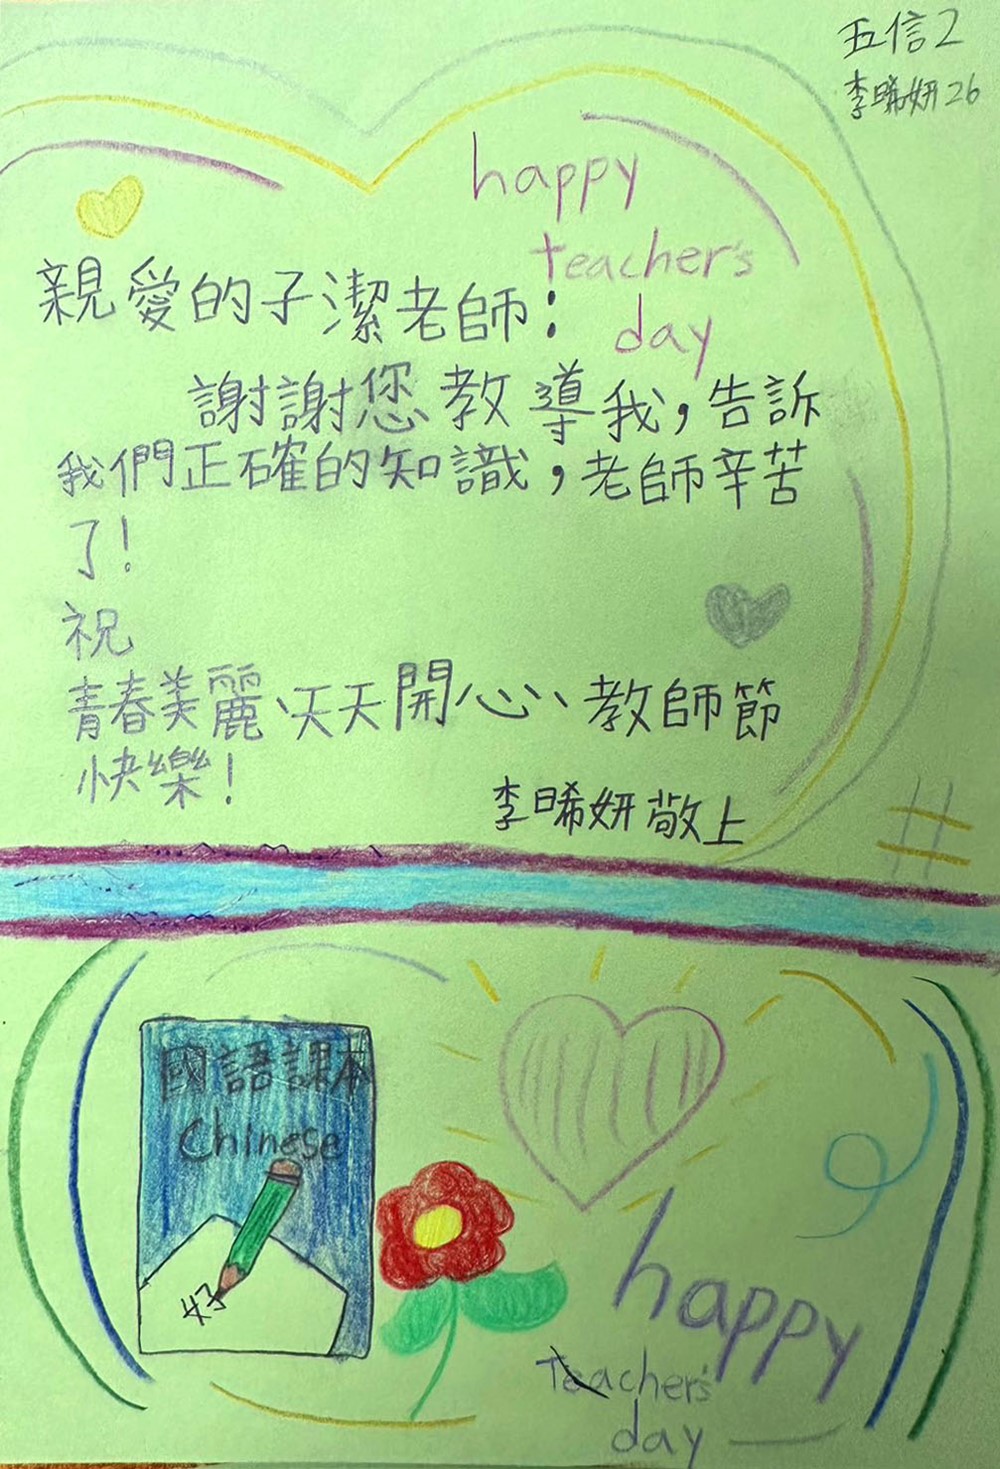 五信2
李晞妍26
happy
teacher's
day
親愛的子潔老師：
謝謝您教導我，告訴
我們正確的知識，老師辛苦
了！
祝
青春美麗、天天開心、教師節
快樂！
李晞妍敬上
國語課本
Chinese
好
happy
Teacher's
day